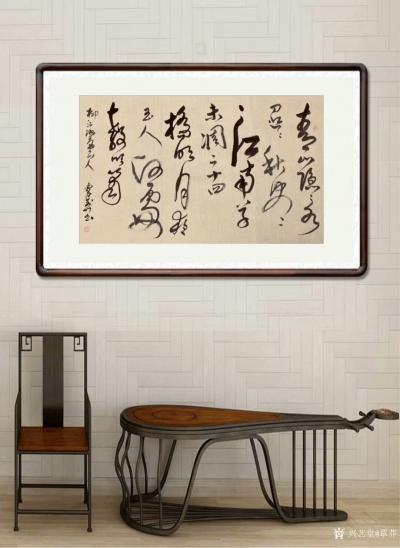 青山隐隐水
迢迢秋尽
江南草
未凋二十四
橋明月夜
玉人何處
教吹簫
兴艺堂